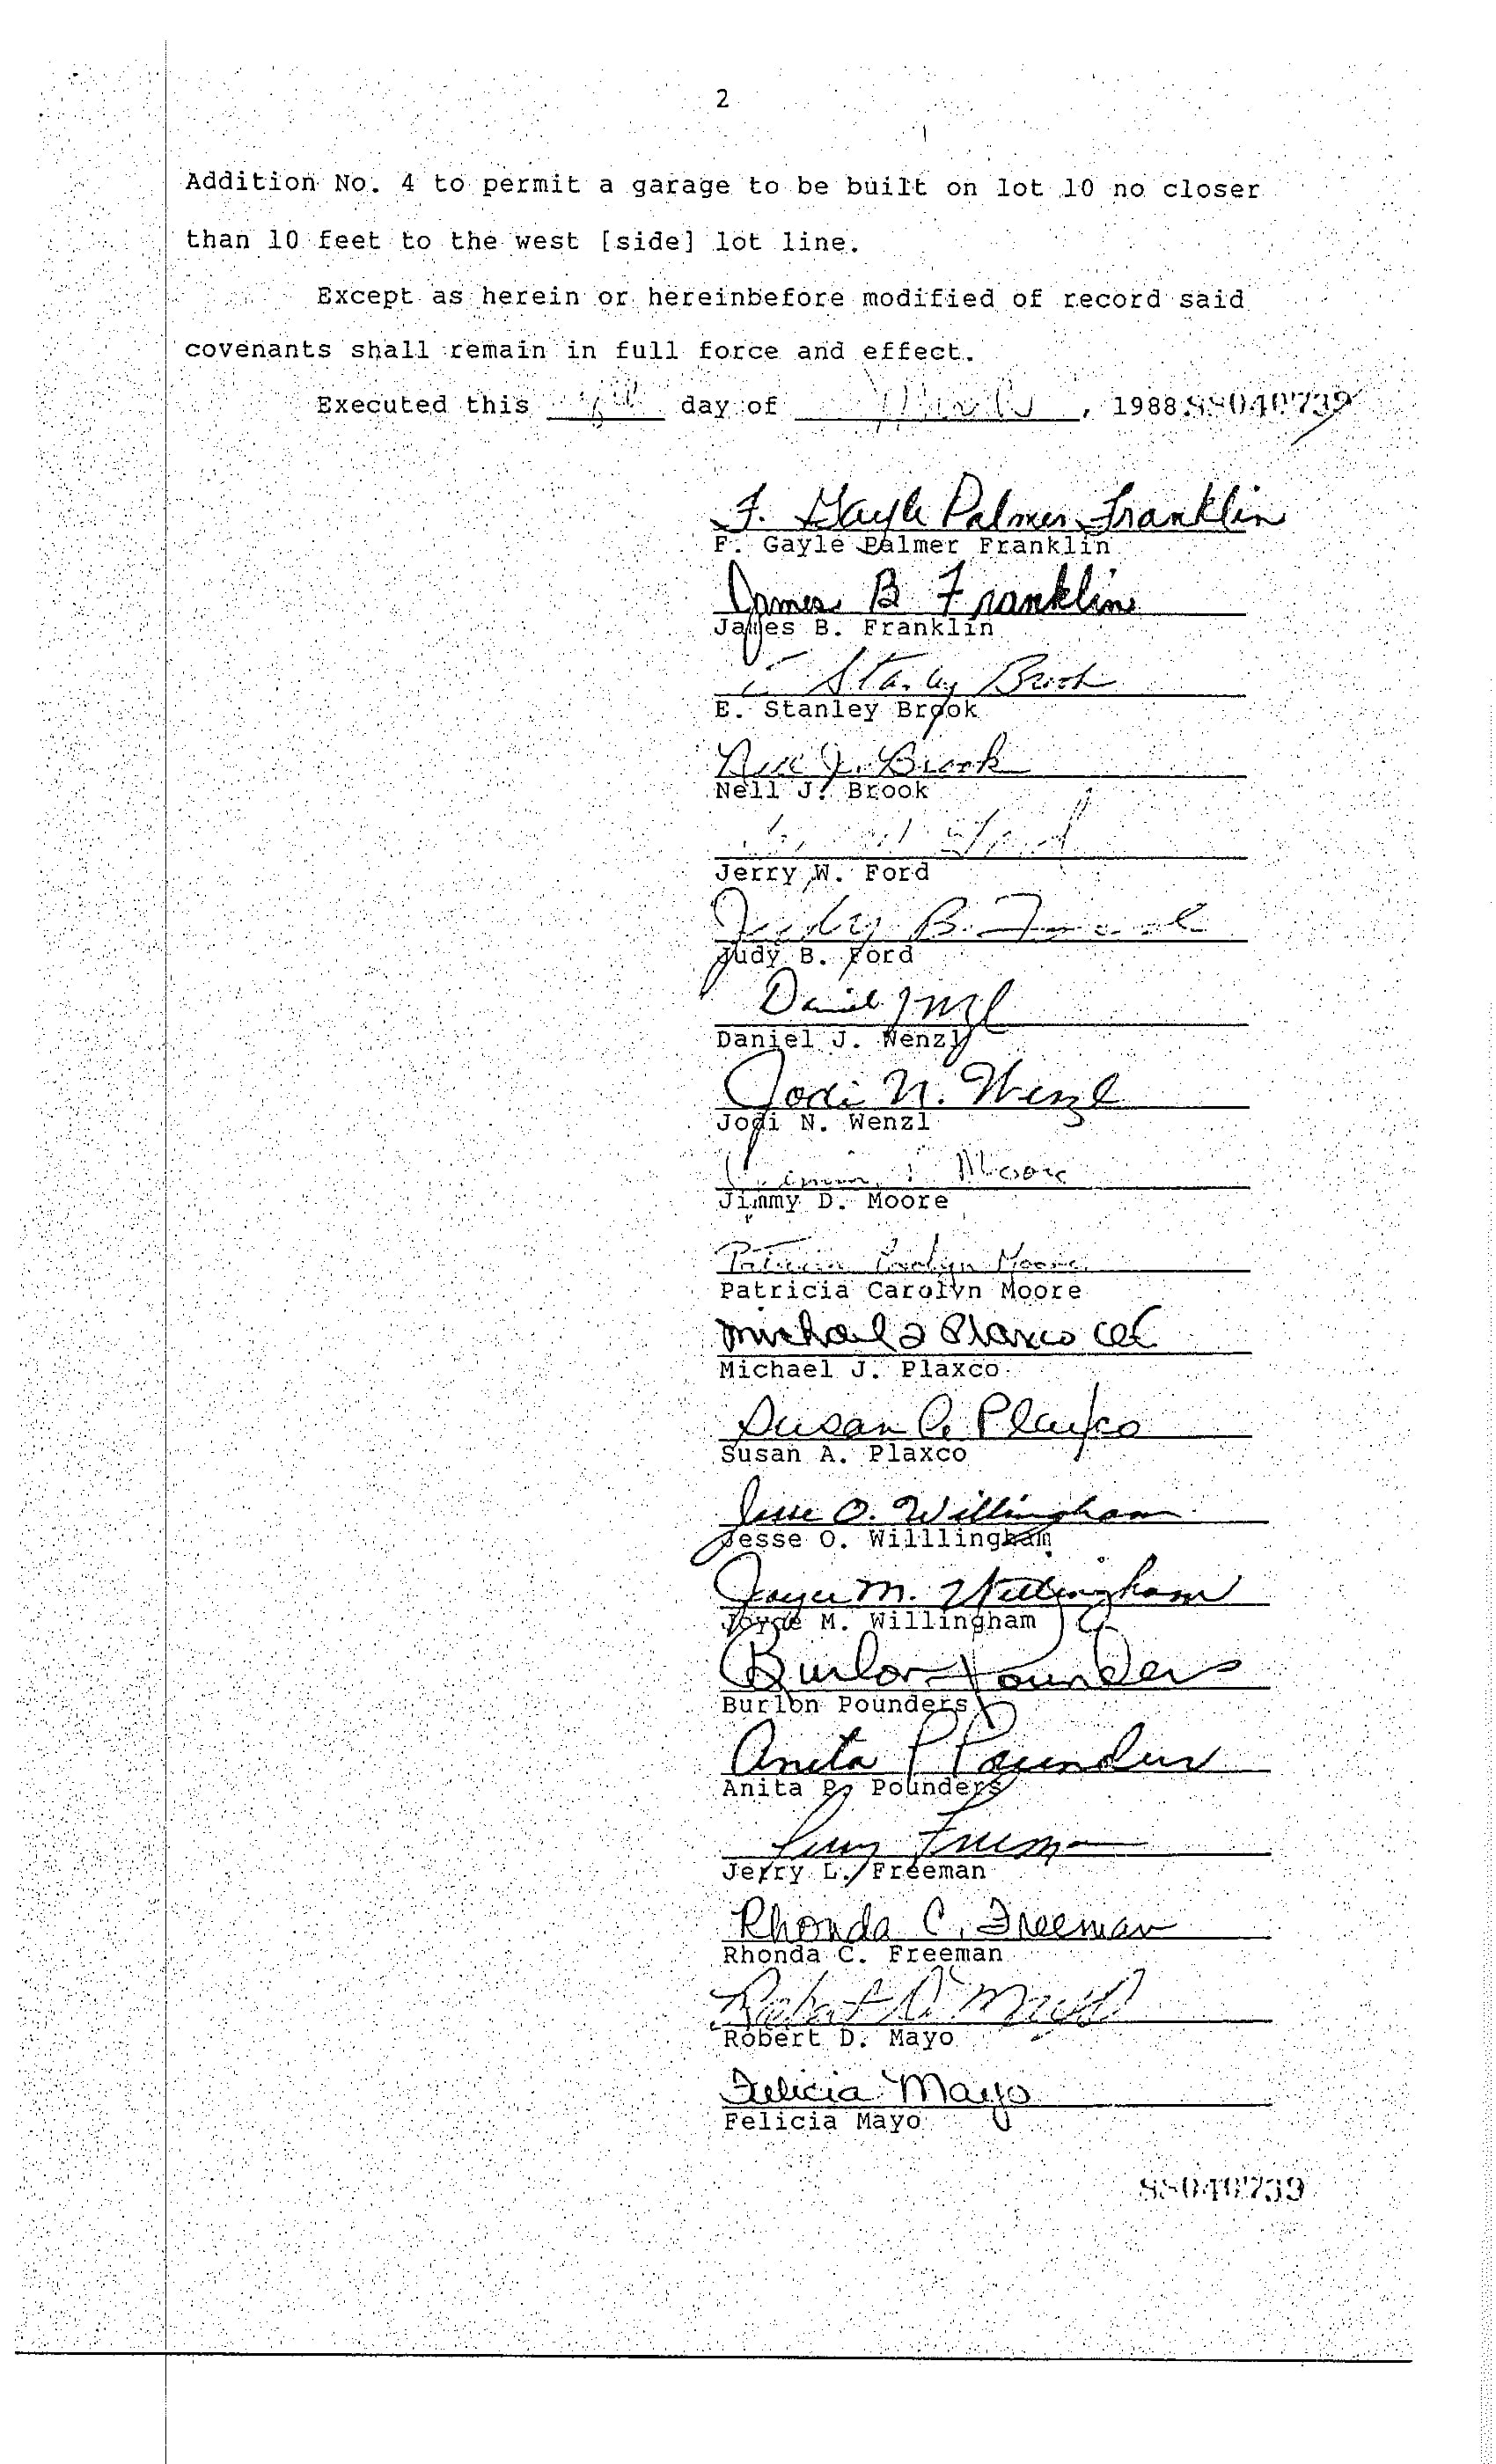 2
Addition No. 4 to permit a garage to be built on lot 10 no closer
than 10 feet to the west [side] lot line.
Except as herein or hereinbefore modified of record said
covenants shall remain in full force and effect.
Executed this day of , 1988 88040739
F. Gayle Palmer Franklin
F. Gayle Palmer Franklin
James B Franklin
James B. Franklin
E Stanley Brook
E. Stanley Brook
Nell J. Brook
Nell J. Brook
Ford
Jerry W. Ford
Judy B. Ford
Judy B. Ford
Daniel J Wenzl
Daniel J. Wenzl
Jodi N. Wenzl
Jodi N. Wenzl
Moore
Jimmy D. Moore
Patricia Carolyn Moore
Patricia Carolyn Moore
Michael J Plaxco
Michael J. Plaxco
Susan A. Plaxco
Susan A. Plaxco
Jesse O. Willingham
Jesse O. Willlingham
Joyce M. Willingham
Joyce M. Willingham
Burlon Pounders
Burlon Pounders
Anita P Pounders
Anita P. Pounders
Jerry Freeman
Jerry L. Freeman
Rhonda C. Freeman
Rhonda C. Freeman
Robert D. Mayo
Robert D. Mayo
Felicia Mayo
Felicia Mayo
88040739